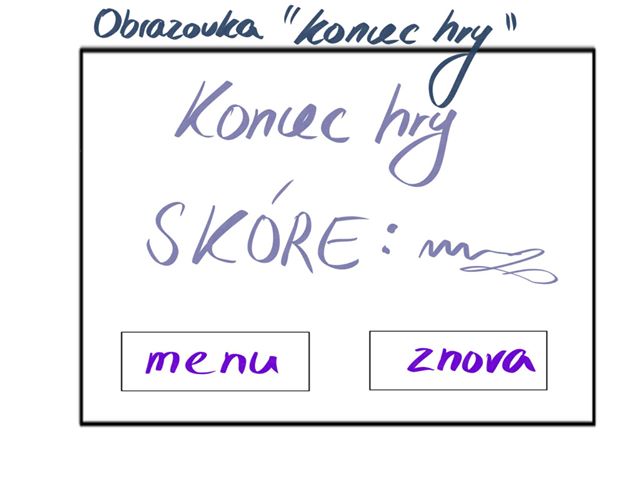 Obrazovka "Koniec hry"
Koniec hry
SKÓRE:
menu
znova